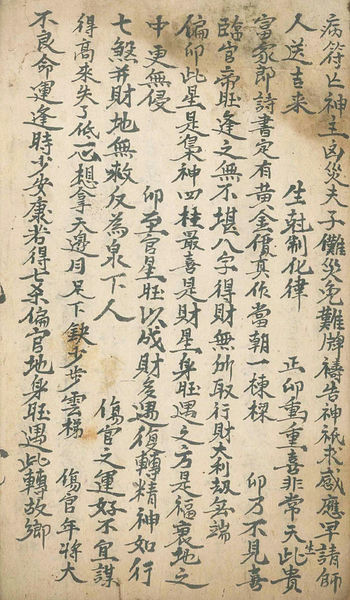 病符亡神主凶災夫子儺災免難牌禱告神祇求感應早請師
人送吉來　生尅制化律　正卯重重喜非常天生此貴
富家郎詩書定有黃金價真作當朝一棟樑　卯刀不見喜
臨官帝旺逢之無不堪八字得財無所取行財大利劫无端
偏卯此星是梟神四柱最喜是財星身旺遇之方是福衰地之
中更無侵　卯重官星旺以成財多遇復轉精神如行
七煞并財地無救反為泉下人　傷官之運好不宜謀
得高來失了低心想拿天邊月足下缺少步雲梯　傷官年將大
不良命運逢時少安康若得七杀偏官地身旺遇此轉故鄉